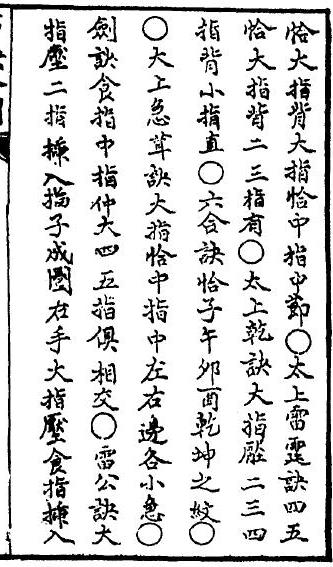 恰大指背大指恰中指中節〇太上雷霆訣四五
恰大指背二三指有〇太上乾訣大指壓二三四
指背小指直〇六合訣恰子午卯酉乾坤之紋〇
〇大上急葺訣大指恰中指中左右邊各小急〇
劍訣食指中指仲大四五指俱相交〇雷公訣大
指壓二指揷入指子成圈右手大指壓食指揷入